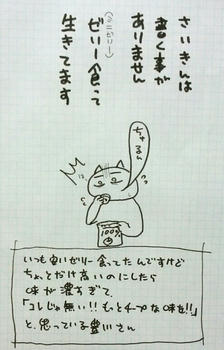 さいきんは
書く事が
ありません
(ミニゼリー)
ぜりー食って
生きてます
ちゅるっ
100%
いつも白いゼリー食ってたんですけど
ちょっとだけ高いのにしたら
味が濃すぎて、
「コレじゃ無い!!もっとチープな味を!!」
と、思っている豊川さん